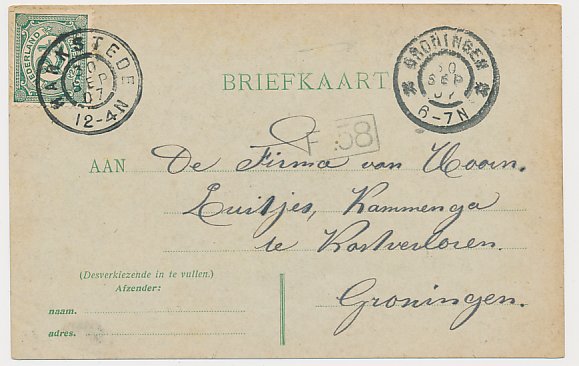 NEDERLAND
HARKSTEDE
30
SEP
07
12-4N
GRONINGEN
30
SEP
07
6-7N
BRIEFKAART
F 58
AAN De Firma van Hoorn,
Luitjes, Kammenga
te Kostverloren.
Groningen.
(Desverkiezende in te vullen.)
Afzender:
naam.
adres.